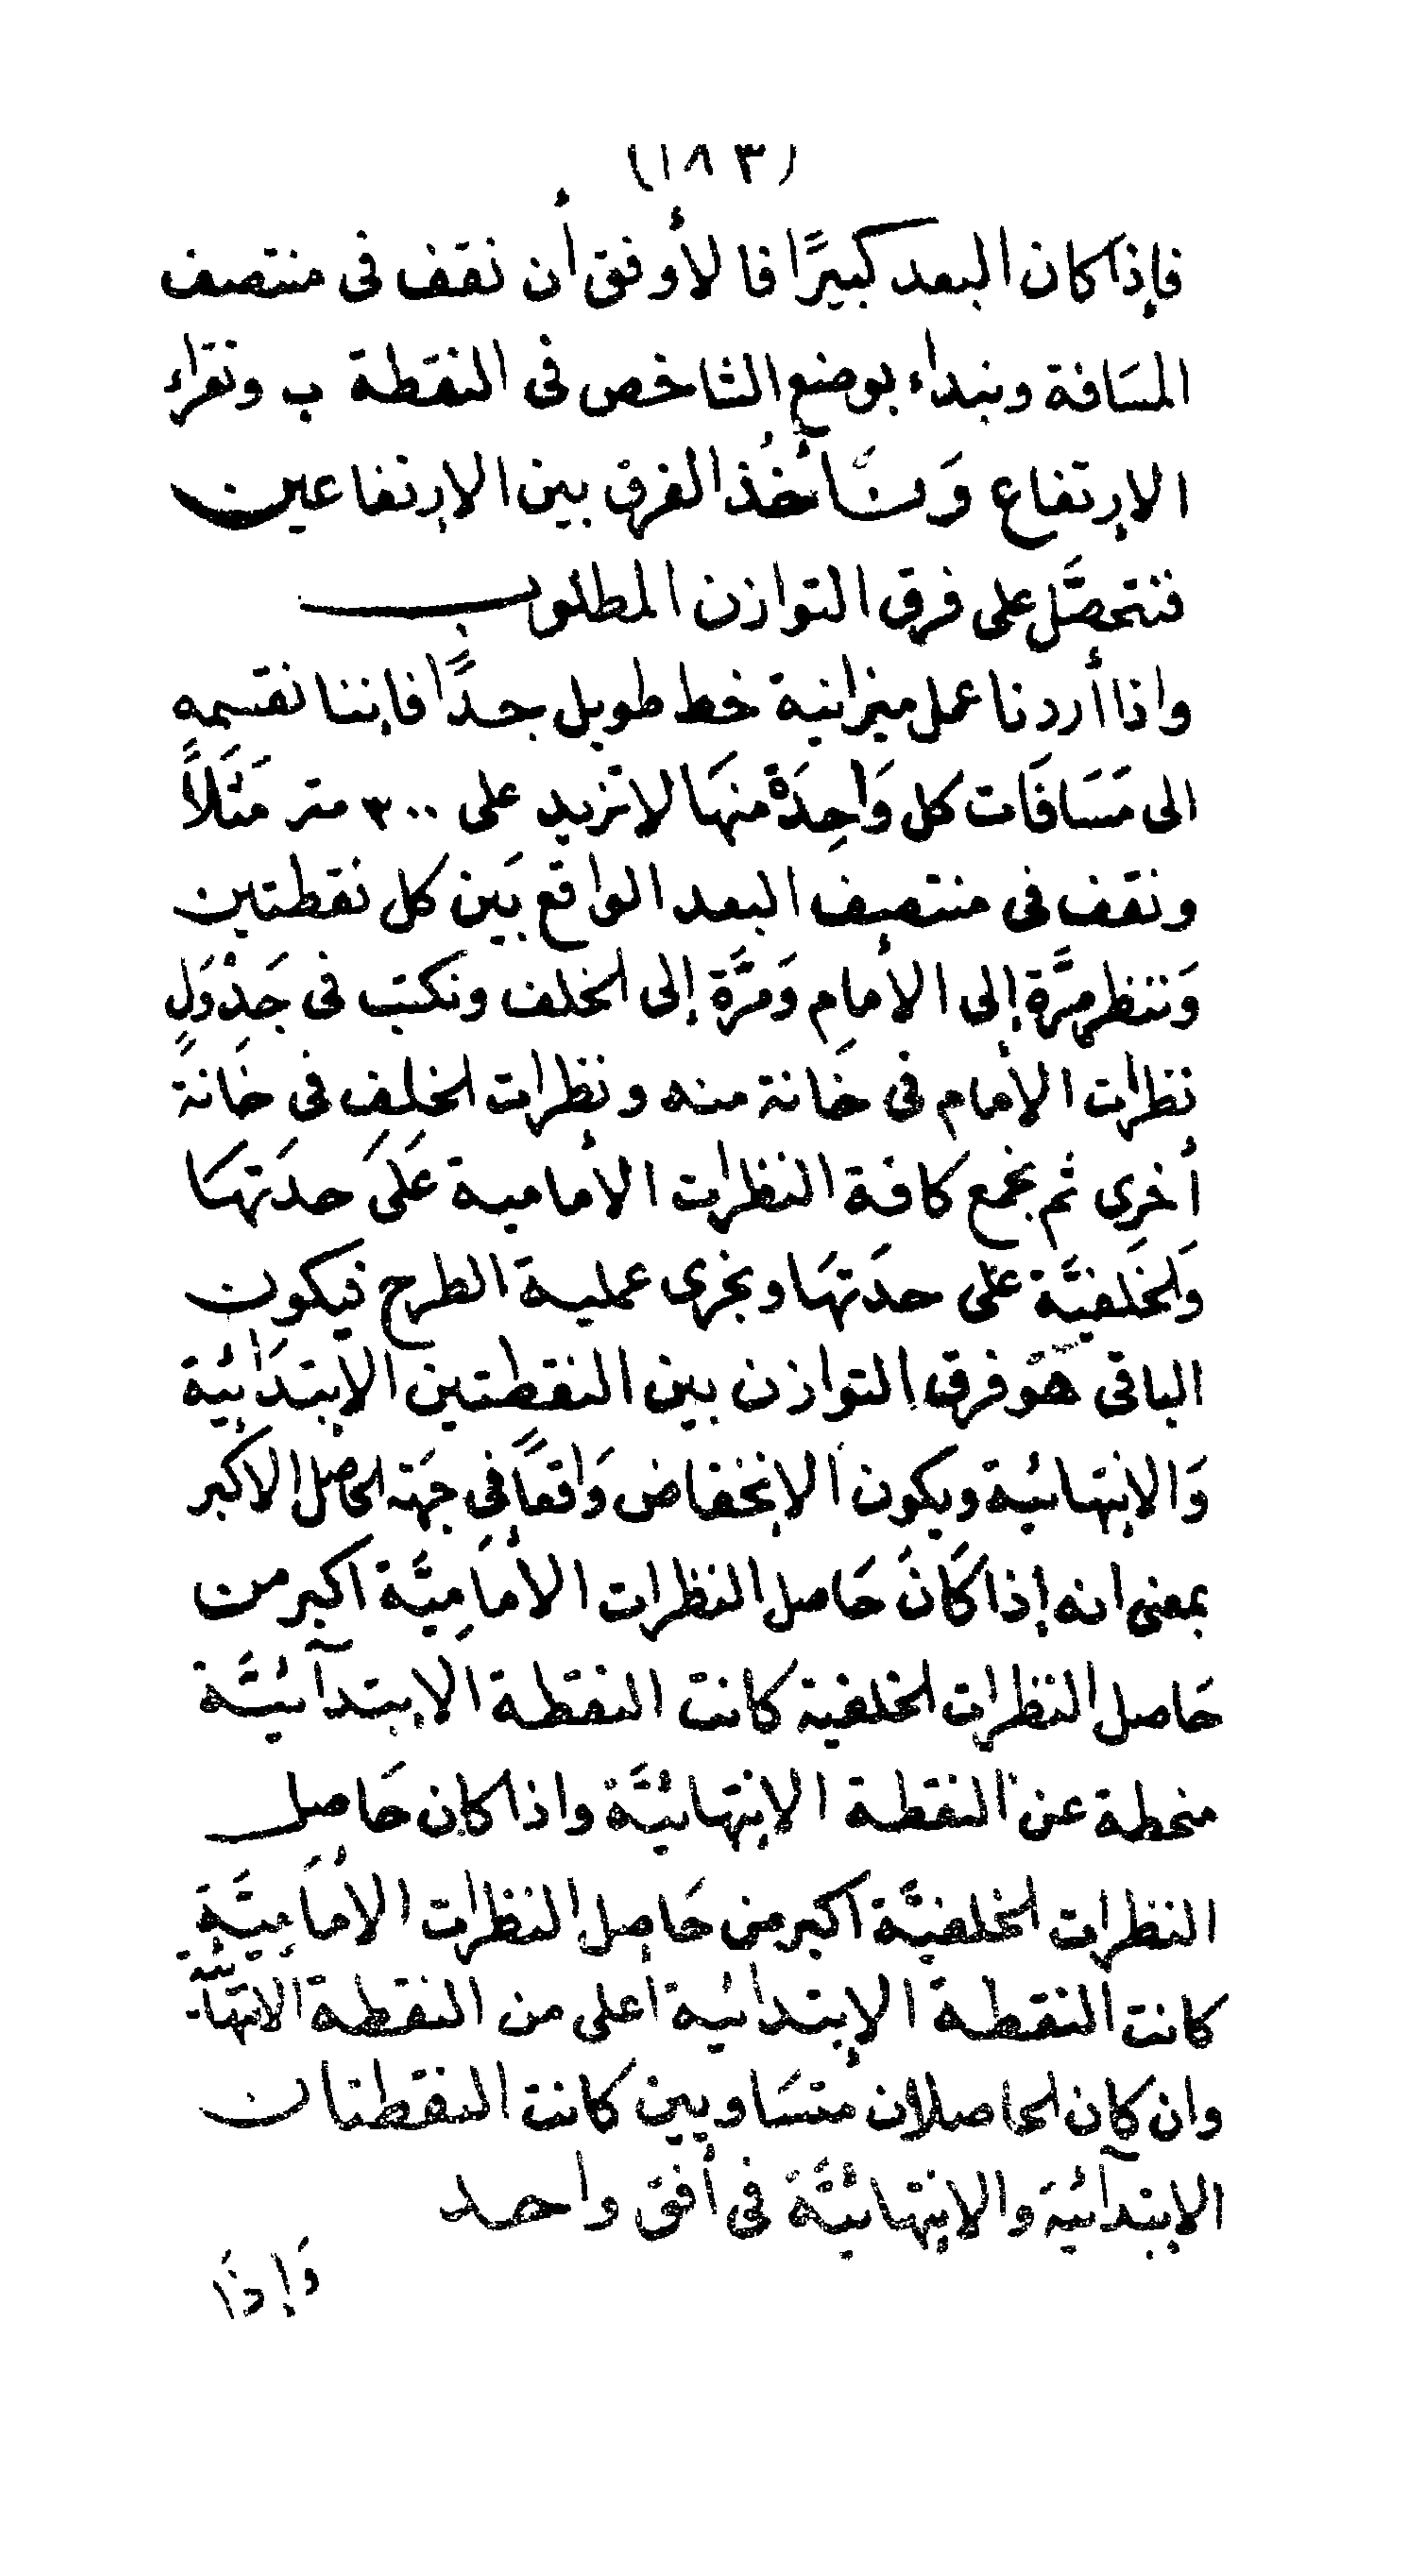 (١٨٣)
فإذا كان البعد كبيرًا فالأوفق أن نقف فى منتصف
المسَافة ونبداء بوضع الشاخص فى النقطة ب ونقراء
الإرتفاع وَنَأخُذ الفرق بين الإرتفاعين
فنتحصَّل على فرق التوازن المطلوب
واذا أردنا عمل ميزانية خط طويل جدًّا فإننا نقسمه
الى مَسَافَات كل وَاحِدَة منهَا لا تزيد على ٣٠٠ متر مَثَلاً
ونقف فى منتصف البعد الواقع بَين كل نقطتين
وَننظر مَرَّة إلى الأمام وَمَرَّة إلى الخلف ونكتب فى جَدْوَلٍ
نظرات الأمام فى خَانة منه ونظرات الخلف فى خَانةً
أخرى ثم نجمع كافة النظرات الأمامية عَلَىَ حدَتهَا
وَالخَلفيَّة على حدَتهَا ونجرى عملية الطرح فيكون
الباقى هَوَ فرق التوازن بين النقطتين الإبتدَائية
وَالإنتهائية ويكون الإنخفاض وَاقعاً فِي جهَة الحاصل الاكبر
بمعنى انه إذا كَانَ حَاصل النظرات الأمَامِيَّة اكبر من
حَاصل النظرات الخلفية كانت النقطة الإبتدآئيَّة
منحطة عن النقطة الإنتهائيَّة واذا كان حَاصِل
النظرات الخلفيَّة اكبر من حَاصِل النظرات الأمَامِيَّةِ
كانت النقطة الإبتدائية أعلى من النقطة الانتهائية
وان كان الحاصلان مُتسَاويين كانت النقطتان
الإبتدآئيَة والإنتهائيَّة فى أفق واحد
وَإذَا